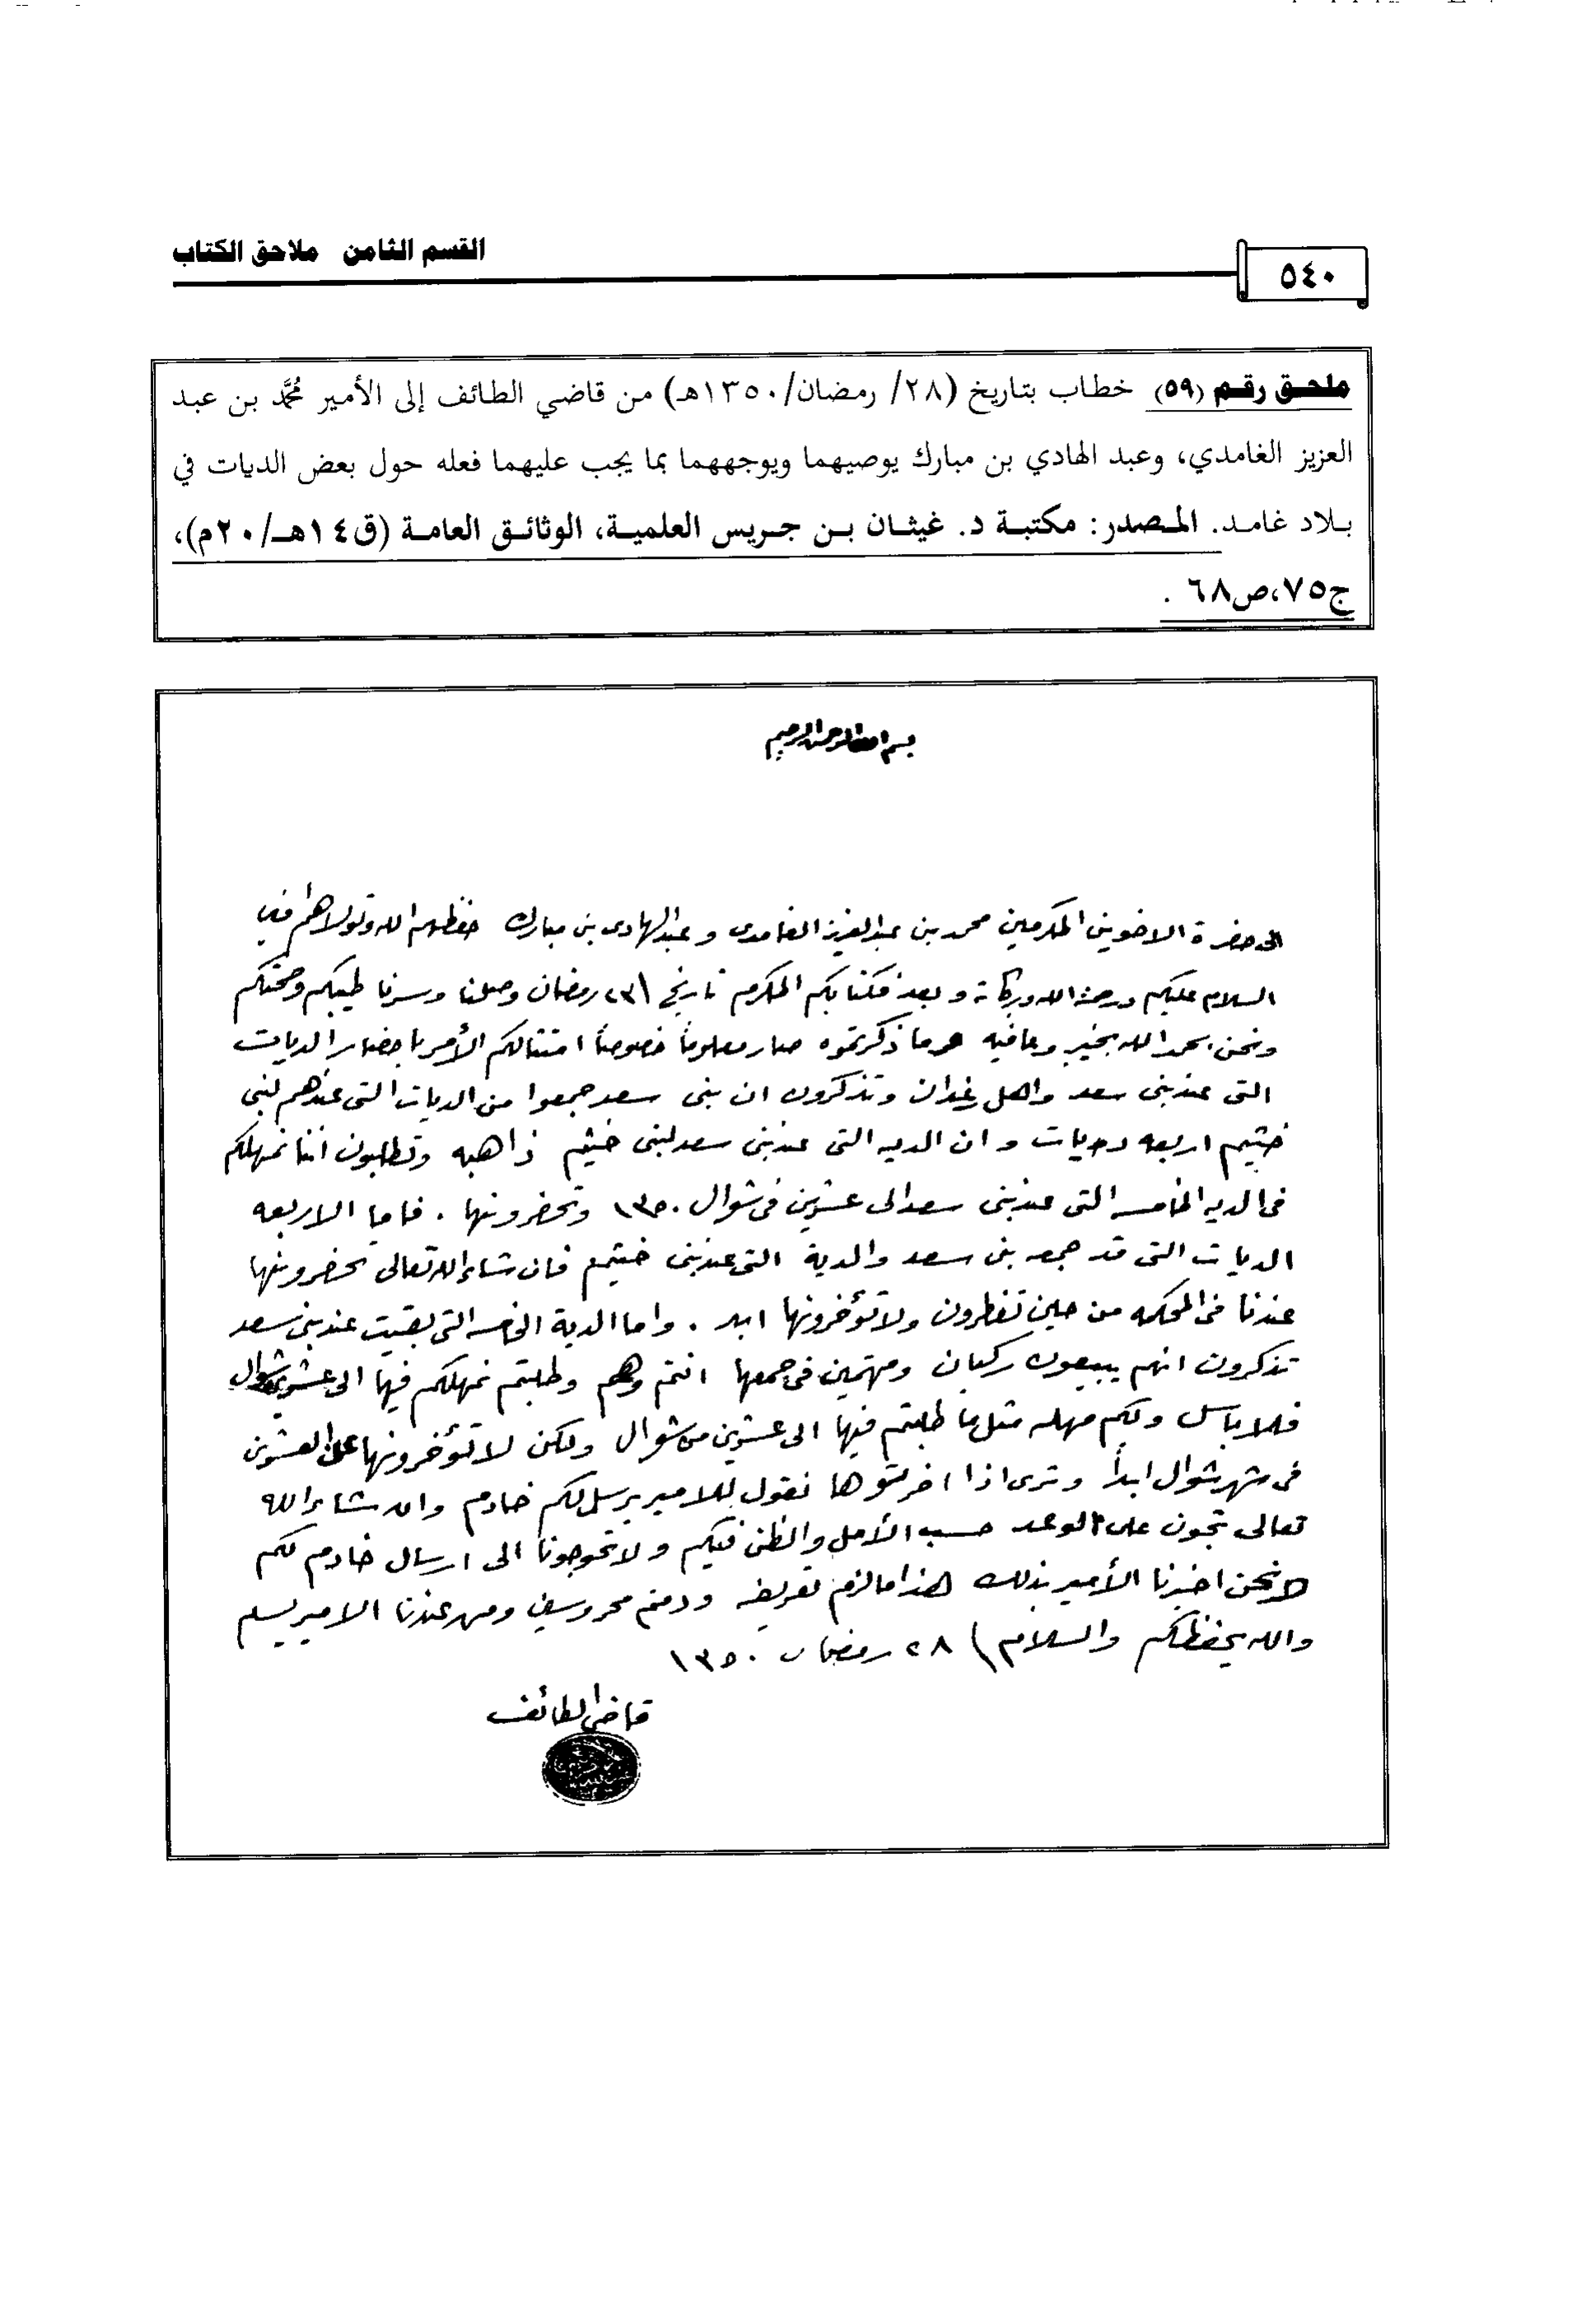 القسم الثامن ملاحق الكتاب
٥٤٠
ملحق رقم (٥٩) خطاب بتاريخ (٢٨/ رمضان/١٣٥٠هـ) من قاضي الطائف إلى الأمير محمَّد بن عبد
العزيز الغامدي، وعبد الهادي بن مبارك يوصيهما ويوجههما بما يجب عليهما فعله حول بعض الديات في
بلاد غامد. المصدر: مكتبة د. غيثان بن جريس العلمية، الوثائق العامة (ق١٤هـ/٢٠م)،
ج٧٥،ص٦٨ .
بسم الله الرحمن الرحيم
الى حضرة الاخوين المكرمين محمد بن عبدالعزيز الغامدى و عبدالهادى بن مبارك حفظهم الله وتولاهم
السلام عليكم ورحمة الله وبركاته وبعد فكتابكم المكرم تاريخ ٢٣ رمضان وصلنا وسرنا طيبكم وصحتكم
ونحن بحمد الله بخير وعافيه ما ذكرتموه صار معلوماً خصوصاً امتثالكم الأمر باحضار الديات
التى عند بنى سعد واهل غدان وتذكرون ان بنى سعد جمعوا من الديات التى عندهم لبنى
خثيم اربعه ديات و ان الديه التى عند بنى سعد لبنى خثيم ذاهبه وتطلبون اننا نمهلكم
فى الديه الخامسه التى عند بنى سعد الى عشرين فى شوال ١٣٥٠ وتحضرونها . فاما الاربعه
الديات التى قد جمعه بنى سعد والدية التى عند بنى خثيم فان شاء الله تعالى تحضرونها
عندنا فى المحكمه من حين تفطرون ولا تؤخرونها ابد . واما الدية الخامسه التى بقيت عند بنى سعد
تذكرون انهم يبيعون ركبان ومهتمين فى جمعها انتم وهم وطلبتم نمهلكم فيها الى عشرين شوال
فلا باس ولكم مهله مثل ما طلبتم فيها الى عشرين من شوال ولكن لا تؤخرونها على العشرين
فى شهر شوال ابداً وترى اذا اخرتوها نقول للامير يرسل لكم خادم وان شاء الله
تعالى تجون على الوعد حسب الأمل والظن فيكم ولا تحوجونا الى ارسال خادم لكم
ونحن اخبرنا الأمير بذلك هذا ما لزم تعريفه ودمتم محروسين ومن عندنا الامير يسلم
والله يحفظكم والسلام ٢٨ رمضان ١٣٥٠
قاضى الطائف